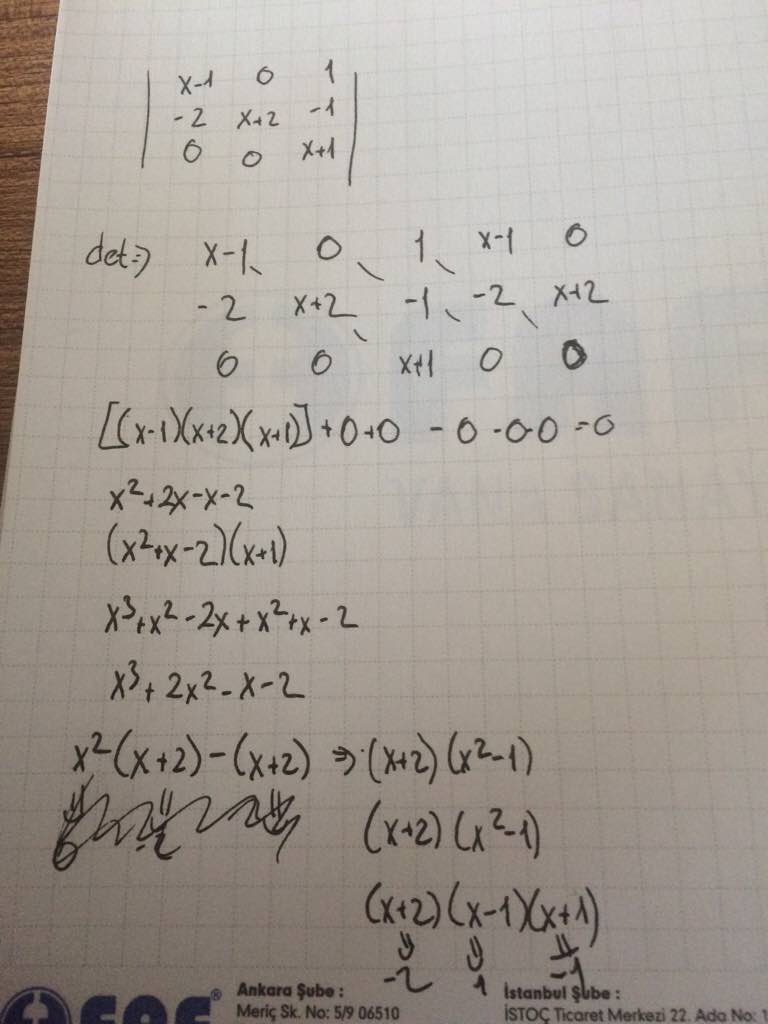 x-1 0 1
-2 x+2 -1
0 0 x+1
det=> x-1 0 1 x-1 0
-2 x+2 -1 -2 x+2
0 0 x+1 0 0
[(x-1)(x+2)(x+1)]+0+0 -0-0-0=0
x²+2x-x-2
(x²+x-2)(x+1)
x³+x²-2x+x²+x-2
x³+2x²-x-2
x²(x+2)-(x+2) => (x+2)(x²-1)
(x+2)(x²-1)
(x+2)(x-1)(x+1)
-2 1 -1
Ankara Şube :
Meriç Sk. No: 5/9 06510
İstanbul Şube :
İSTOÇ Ticaret Merkezi 22. Ada No: 1